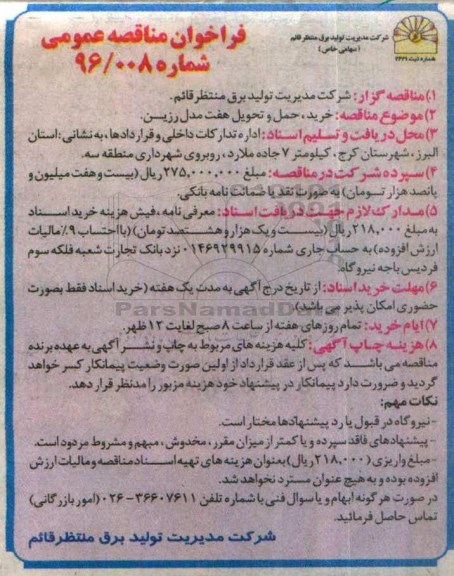 شرکت مدیریت تولید برق منتظر قائم
(سهامی خاص)
فراخوان مناقصه عمومی
شماره ۹۶/۰۰۸
۱) مناقصه گزار: شرکت مدیریت تولید برق منتظر قائم.
۲) موضوع مناقصه: خرید، حمل و تحویل هفت مدل رزین.
۳) محل دریافت و تسلیم اسناد: اداره تدارکات داخلی و قراردادها، به نشانی: استان
البرز، شهرستان کرج، کیلومتر ۷ جاده ملارد، روبروی شهرداری منطقه سه.
۴) سپرده شرکت در مناقصه: مبلغ ۲۷۵,۰۰۰,۰۰۰ ریال (بیست و هفت میلیون و
پانصد هزار تومان) به صورت نقد یا ضمانت نامه بانکی.
۵) مدارک لازم جهت دریافت اسناد: معرفی نامه، فیش هزینه خرید اسناد
به مبلغ ۲۱۸,۰۰۰ ریال (بیست و یک هزار و هشتصد تومان) با احتساب ۹٪ مالیات
ارزش افزوده) به حساب جاری شماره ۰۱۴۶۹۲۹۹۱۵ نزد بانک تجارت شعبه فلکه سوم
فردیس باجه نیروگاه.
۶) مهلت خرید اسناد: از تاریخ درج آگهی به مدت یک هفته (خرید اسناد فقط بصورت
حضوری امکان پذیر می باشد)
۷) ایام خرید: تمام روزهای هفته از ساعت ۸ صبح لغایت ۱۲ ظهر.
۸) هزینه چاپ آگهی: کلیه هزینه های مربوط به چاپ و نشر آگهی به عهده برنده
مناقصه می باشد که پس از عقد قرارداد از اولین صورت وضعیت پیمانکار کسر خواهد
گردید و ضرورت دارد پیمانکار در پیشنهاد خود هزینه مزبور را مدنظر قرار دهد.
نکات مهم:
- نیروگاه در قبول یا رد پیشنهادها مختار است.
- پیشنهادهای فاقد سپرده و یا کمتر از میزان مقرر، مخدوش، مبهم و مشروط مردود است.
- مبلغ واریزی (۲۱۸,۰۰۰ ریال) بعنوان هزینه های تهیه اسناد مناقصه و مالیات ارزش
افزوده بوده و به هیچ عنوان مسترد نخواهد شد.
در صورت هر گونه ابهام و یا سوال فنی با شماره تلفن ۳۶۶۰۷۶۱۱-۰۲۶ (امور بازرگانی)
تماس حاصل فرمائید.
شرکت مدیریت تولید برق منتظر قائم